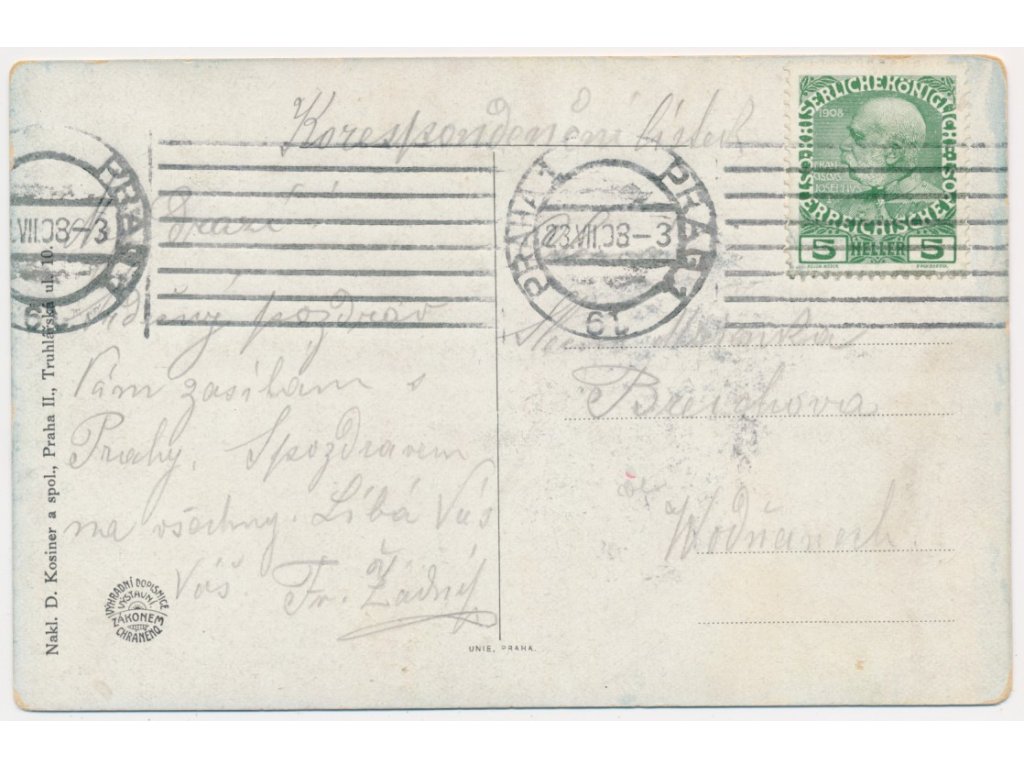 Korespondenční lístek
PRAHA 1 PRAG 1
23.VII.08-3
61
PRAG
.VII.08-3
61
KAISERLICHE KÖNIGLICHE ÖSTERREICHISCHE POST
1908
FRANCISCVS JOSEPHVS I
5 HELLER 5
Drazí
Srdečný pozdrav
Vám zasílám s
Prahy. Spozdravem
na všechny. Líbá Vás
Váš. Fr. Žádný
Burchova
Wodňanech.
Nakl. D. Kosiner a spol., Praha II., Truhlářská ul. 10.
VÝHRADNÍ DOPISNICE
VÝSTAVNÍ
ZÁKONEM
CHRÁNĚNO
UNIE, PRAHA.